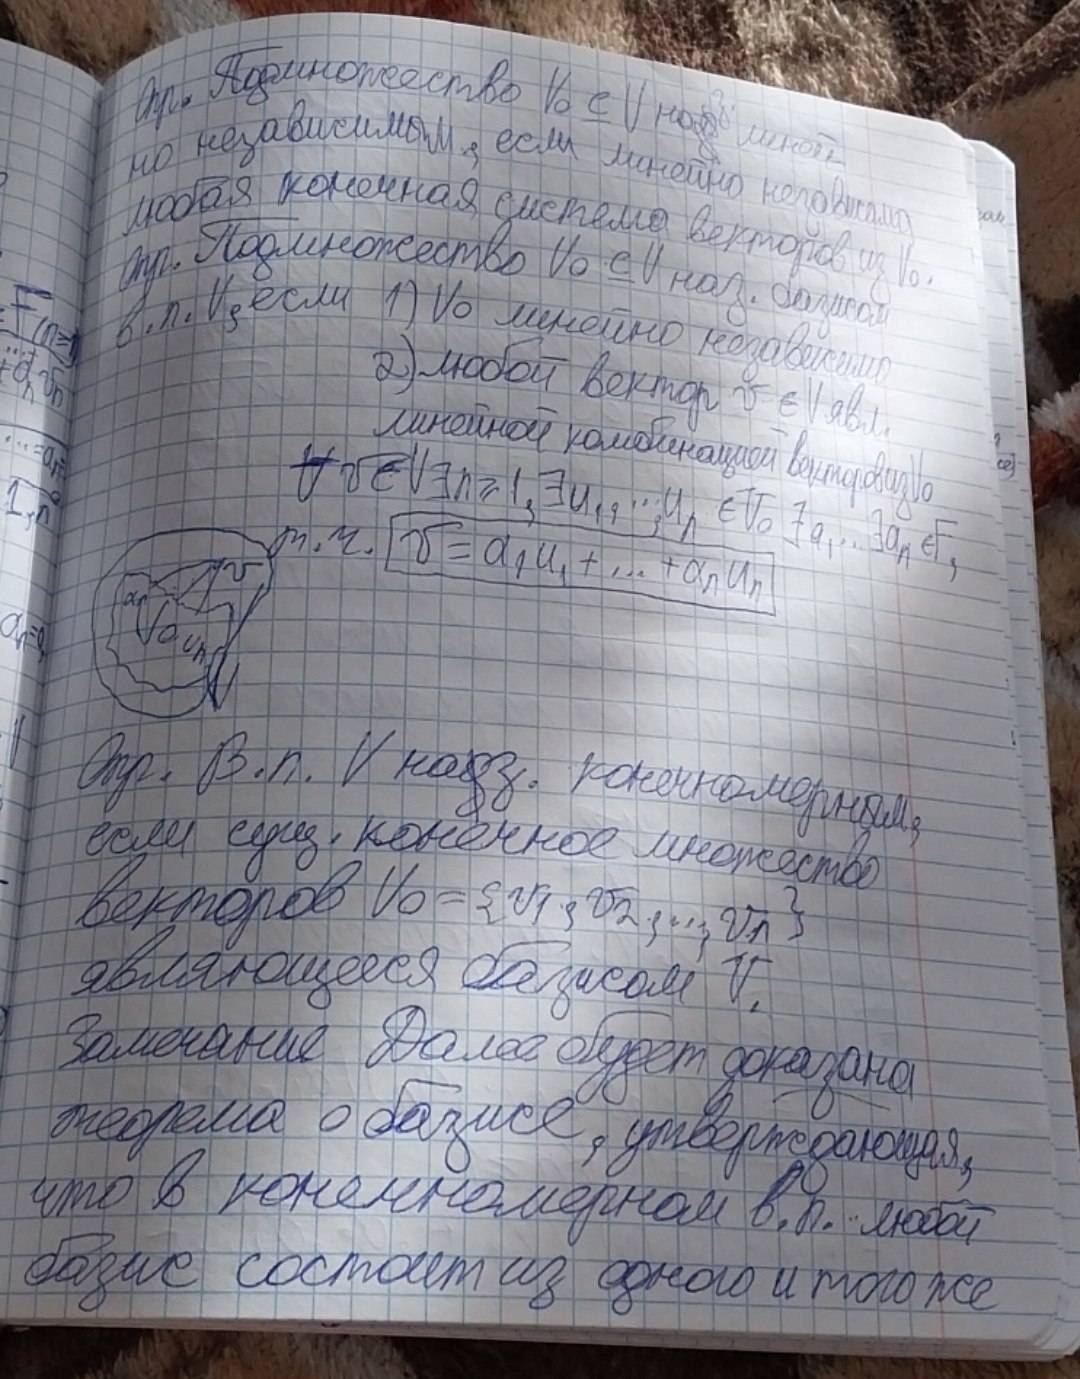 Опр. Подмножество V₀ ⊆ V наз. линей-
но независимым, если линейно независима
любая конечная система векторов из V₀.
Опр. Подмножество V₀ ⊆ V наз. базисом
в.п. V, если 1) V₀ линейно независимо
2) любой вектор v ∈ V явл.
линейной комбинацией векторов из V₀
∀ v ∈ V ∃ n ≥ 1, ∃ u₁, ..., uₙ ∈ V₀ ∃ a₁ ... ∃ aₙ ∈ F,
т.ч. v = a₁u₁ + ... + aₙuₙ
v
V₀ uₙ
V
Опр. В.п. V наз. конечномерным,
если сущ. конечное множество
векторов V₀ = {v₁, v₂, ..., vₙ}
являющееся базисом V.
Замечание Далее будет доказана
теорема о базисе, утверждающая,
что в конечномерном в.п. любой
базис состоит из одного и того же